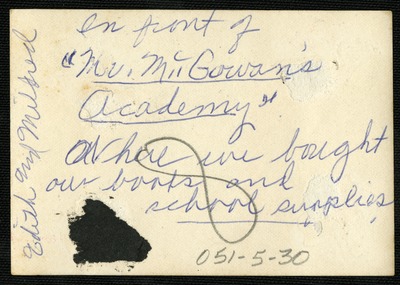 In front of
"Mr. McGowan's
Academy"
Whare we bought
our books and
school supplies
051-5-30
Edith and Mildred